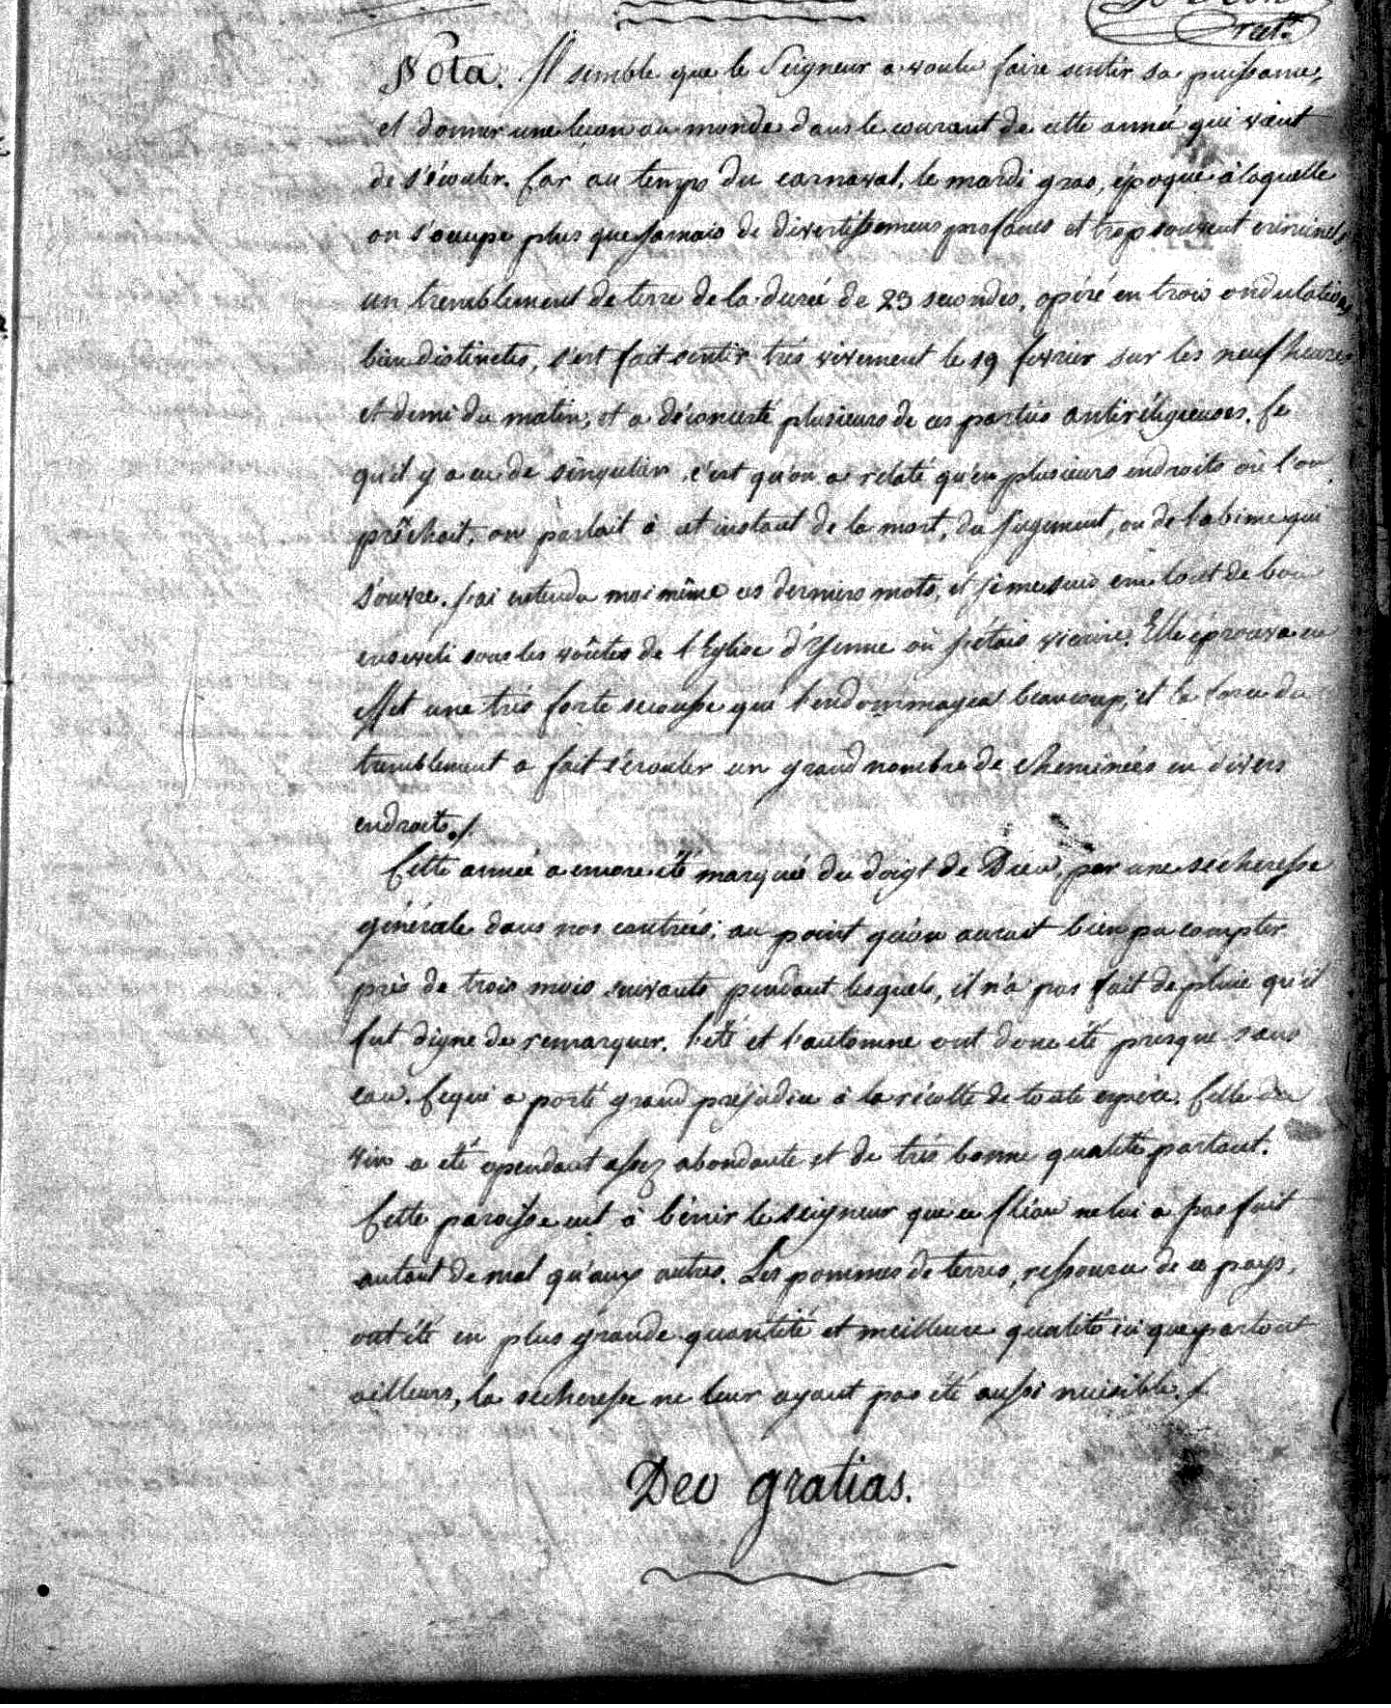 rect.
Nota. Il semble que le Seigneur a voulu faire sentir sa puissance,
et donner une leçon au monde dans le courant de cette année qui vient
de s'écouler. Car au temps du carnaval, le mardi gras, époque à laquelle
on s'occupe plus que jamais de divertissemens profanes et trop souvent criminels,
un tremblement de terre de la durée de 23 secondes, opéré en trois ondulations
bien distinctes, s'est fait sentir très vivement le 19 fevrier sur les neuf heures
et demi du matin, et a déconcerté plusieurs de ces parties antiréligieuses. Ce
qu'il y a eu de singulier, c'est qu'on a rélaté qu'en plusieurs endroits où l'on
prêchait, on parlait à cet instant de la mort, du jugement, ou de l'abime qui
s'ouvre. J'ai entendu moi même ces derniers mots, et je me suis cru tout de bon
enseveli sous les voûtes de l'Eglise d'Yenne où j'étais vicaire. Elle éprouva en
effet une très forte secousse qui l'endommagea beaucoup, et la force du
tremblement a fait s'écrouler un grand nombre de cheminées en divers
endroits./
Cette année a encore été marquée du doigt de Dieu, par une secheresse
générale dans nos contrées; au point qu'on aurait bien pu compter
près de trois mois suivants pendant lesquels, il n'a pas fait de pluie qu'il
fut digne de remarquer. L'été et l'automne ont donc été presque sans
eau. Ce qui a porté grand préjudice à la récolte de toute espèce. Celle du
vin a été cependant assez abondante et de très bonne qualité partout.
Cette paroisse eut à bénir le Seigneur que ce fléau ne lui a pas fait
autant de mal qu'aux autres. Les pommes de terres, ressource de ce pays,
ont été en plus grande quantité et meilleure qualité ici que partout
ailleurs, la secheresse ne leur ayant pas été aussi nuisible./
Deo gratias.